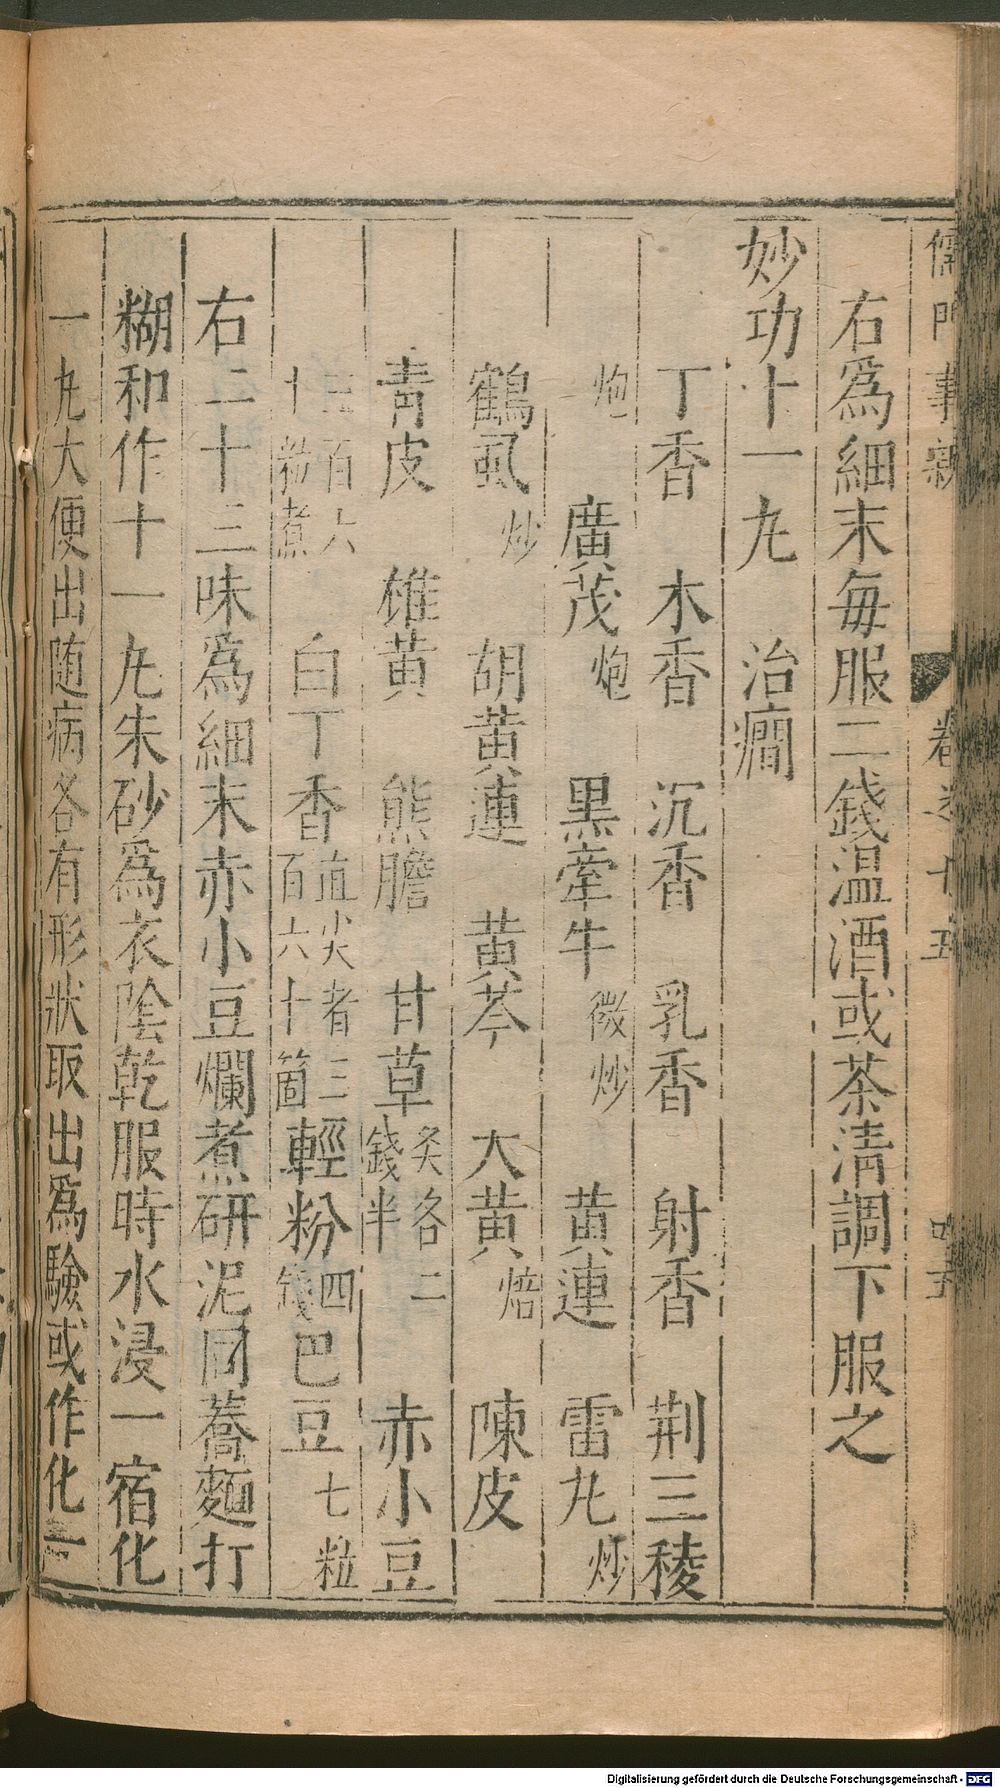 儒門事親 卷之十五 四十五
右爲細末每服二錢温酒或茶清調下服之
妙功十一丸 治癇
丁香 木香 沉香 乳香 射香 荆三稜
炮 廣茂炮 黒牽牛微炒 黄連 雷丸炒
鶴虱炒 胡黄連 黄芩 大黄焙 陳皮
青皮 雄黄 熊膽 甘草炙各二錢半 赤小豆
三百六十粒煮 白丁香直尖者三百六十箇 輕粉四錢 巴豆七粒
右二十三味爲細末赤小豆爛煮研泥同蕎麵打
糊和作十一丸朱砂爲衣陰乾服時水浸一宿化
一丸大便出随病各有形狀取出爲驗或作化一
Digitalisierung gefördert durch die Deutsche Forschungsgemeinschaft - DFG